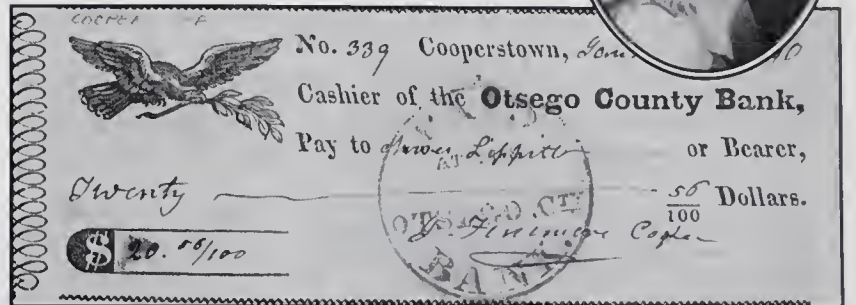 COOPER F
No. 339 Cooperstown,
Cashier of the Otsego County Bank,
Pay to Lippitt or Bearer,
Twenty 56/100 Dollars.
$ 20. 56/100
J. Fenimore Cooper
AT
OTSEGO CTY
BANK